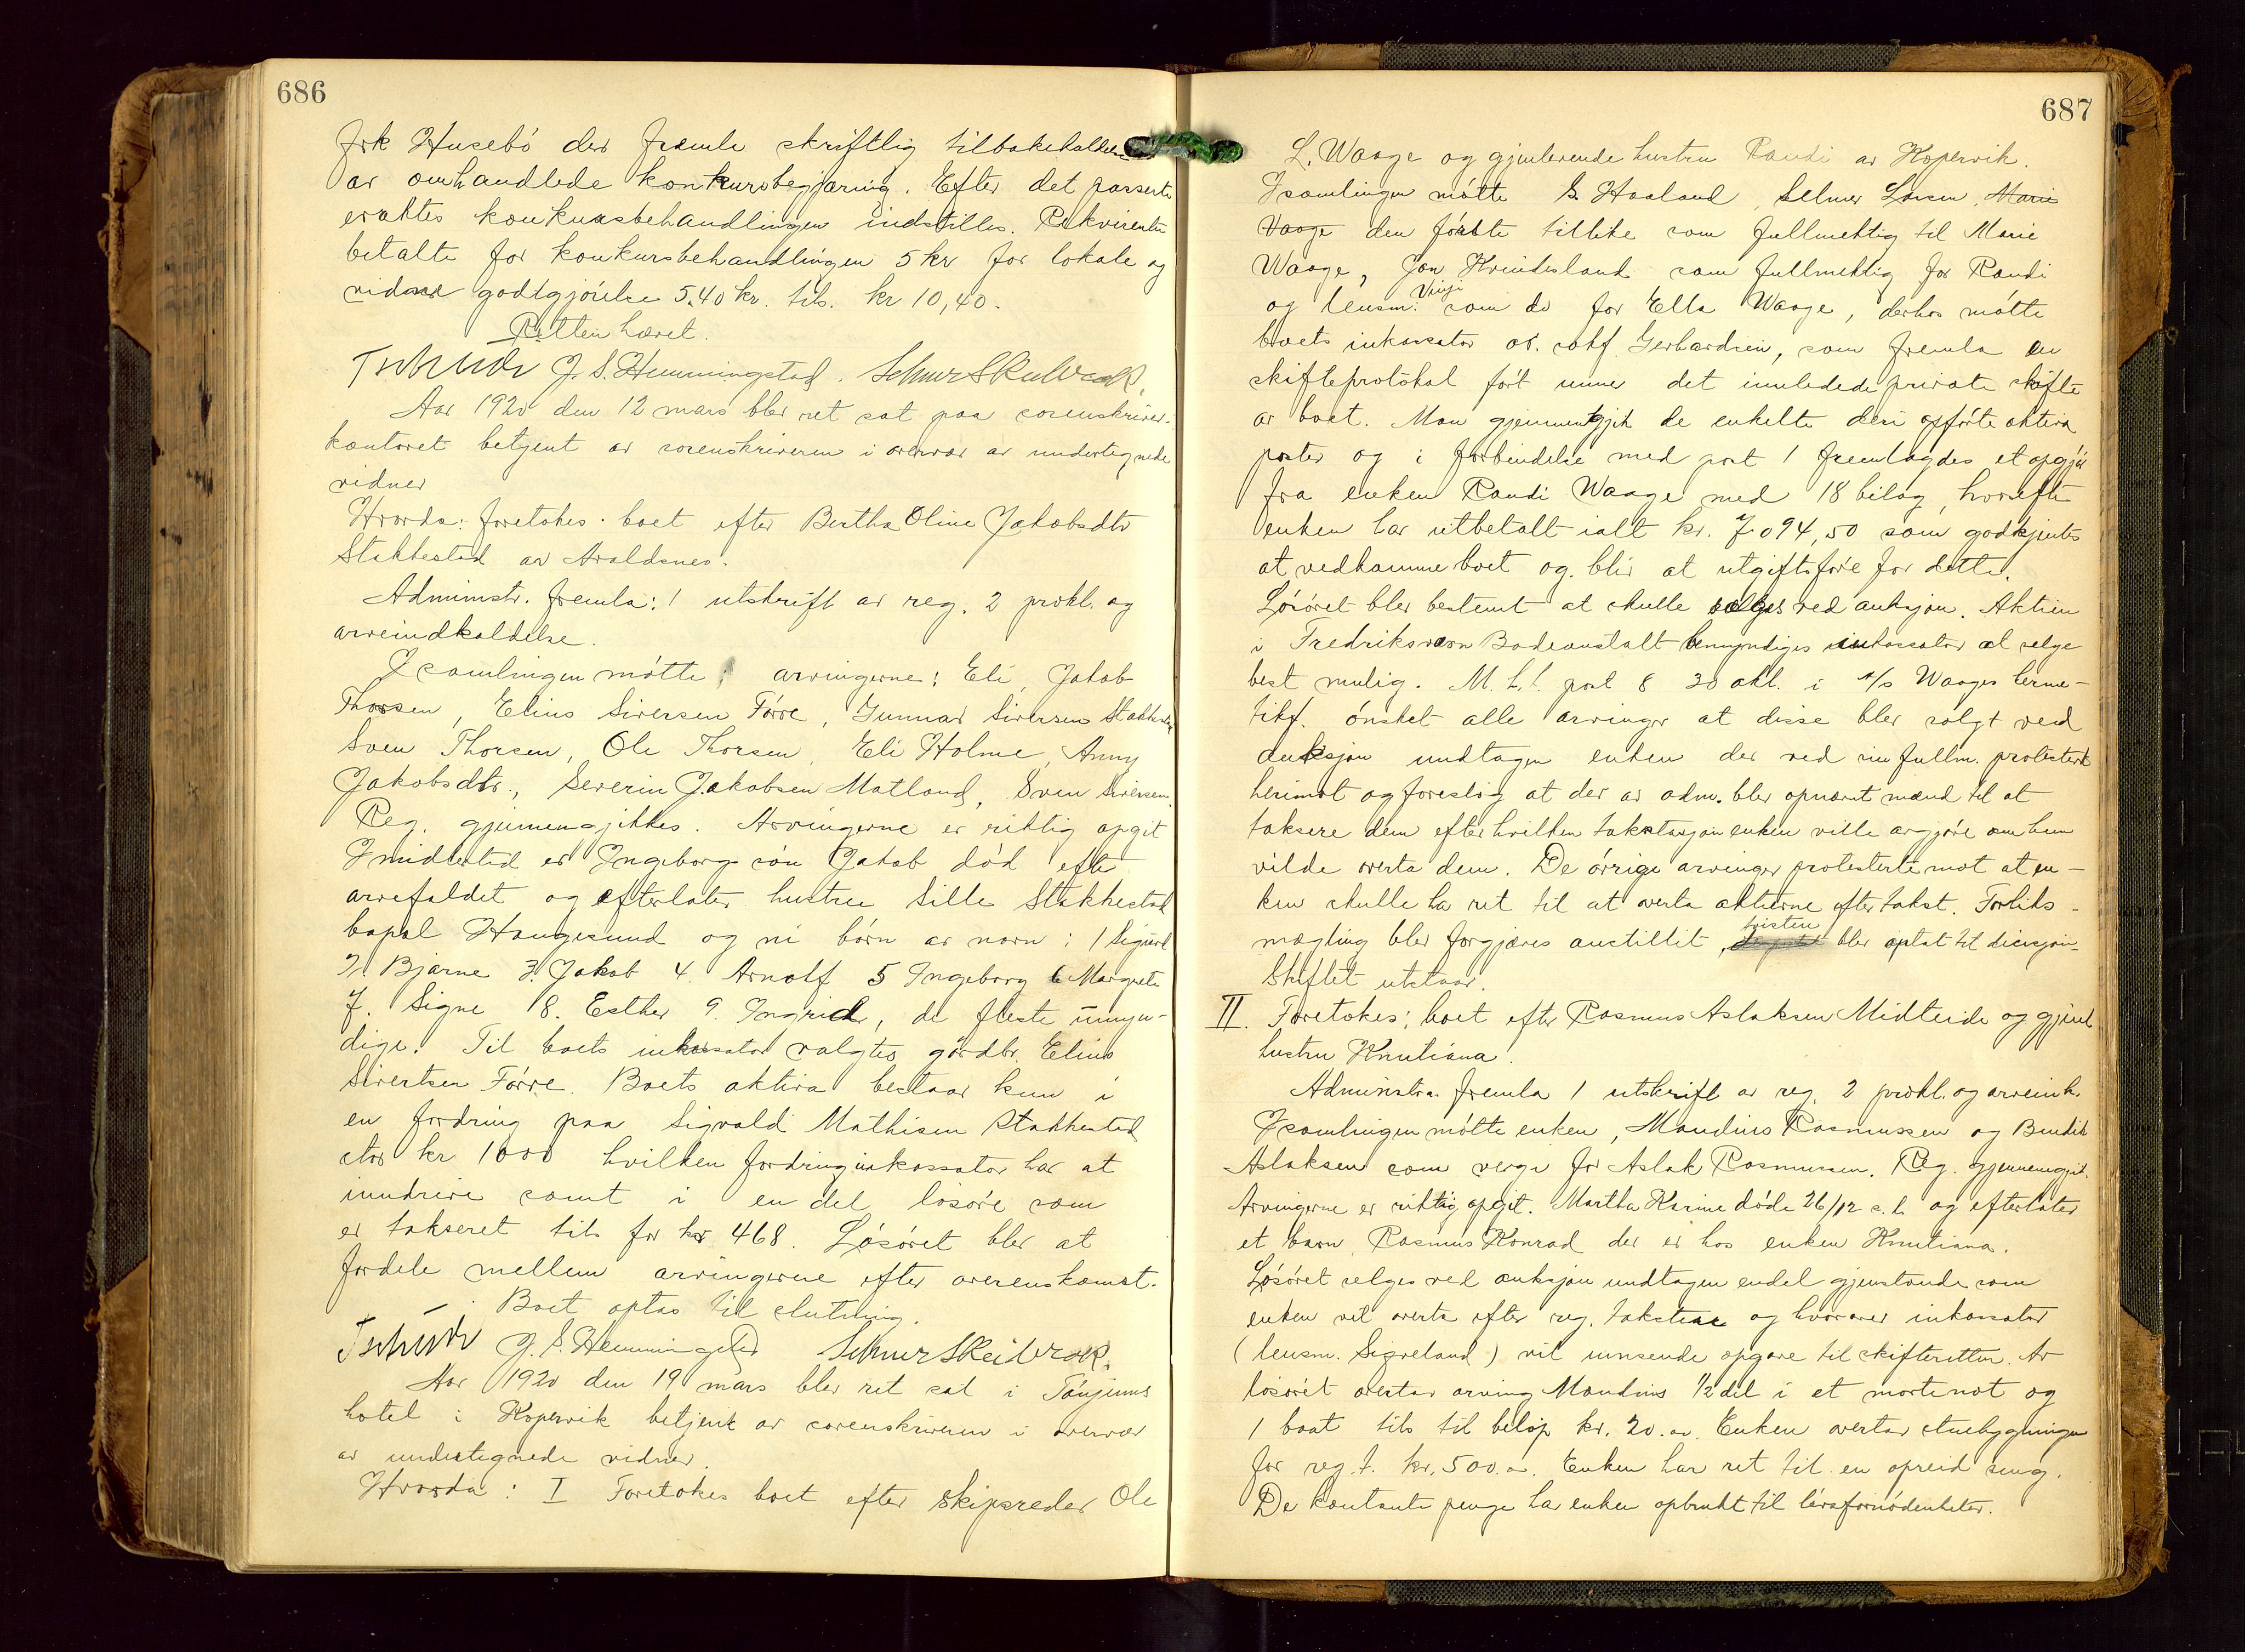 686
frk Husebö der fremla skriftlig tilbakekallelse
av omhandlede konkursbegjæring. Efter det passerte
eraktes konkursbehandlingen indstilles. Rekvirenten
betalte for konkursbehandlingen 5 kr for lokale og
vidner godtgjörelse 5.40 kr. tils. kr 10,40.
Retten hævet.
Tschudi J. S. Hemmingstad.
Aar 1920 den 12 mars blev ret sat paa sorenskriver-
kontoret betjent av sorenskriveren i overvær av undertegnede
vidner
Hvorda: foretokes boet efter Bertha Oline Jakobsdtr
Stakkestad av Avaldsnes.
Administr. fremla: 1 utskrift av reg. 2 prokl. og
arveindkaldelse.
I samlingen mötte: arvingerne: Eli, Jakob
Thorsen, Elius Siversen Förre, Gunnar Siversen Stakkestad
Sven Thorsen, Ole Thorsen, Eli Holme, Anny
Jakobsdtr., Severin Jakobsen Matland, Sven Siversen.
Reg. gjennemgikkes. Arvingerne er riktig opgit
Imidlertid er Ingeborgs sön Jakob död efter
arvefaldet og efterlater hustru Sille Stakkestad
bopæl Haugesund og ni börn av navn: 1 Sigurd
2. Bjarne 3. Jakob 4. Arnolf 5 Ingeborg 6 Margrete
7. Signe 8. Esther 9. Ingrid, de fleste umyn-
dige. Til boets inkassator valgtes gårdbr. Elius
Sivertsen Förre. Boets aktiva bestaar kun i
en fordring paa Sigvald Mathisen Stakkestad
stor kr 1000 hvilken fordring inkassator har at
inndrive samt i en del lösöre som
er taksert tils for kr 468. Lösöret blev at
fordele mellem arvingerne efter overenskomst.
Boet optas til slutning.
Tschudi J. S. Hemmingstad
Aar 1920 den 19 mars blev ret sat i Tönjums
hotel i Kopervik betjent av sorenskriveren i overvær
av undertegnede vidner.
Hvorda: I Foretokes boet efter skipsreder Ole
687
L. Waage og gjenlevende hustru Randi av Kopervik.
I samlingen mötte G. Haaland, Selmer Larsen, Marie
Vaage den förste tillike som fullmektig til Marie
Waage, Jon Kvindesland som fullmektig for Randi
og lensm. Vinje som do for Ella Waage, derhos mötte
boets inkassator o.r. sakf. Gerhardsen, som fremla en
skifteprotokol fört under det innledede private skifte
av boet. Man gjennemgik de enkelte deri opförte aktiva
poster og i forbindelse med post 1 fremlagdes et opgjör
fra enken Randi Waage med 18 bilag, hvorefter
enken har utbetalt ialt kr. 7094,50 som godkjentes
at vedkomme boet og blir at utgiftsföre for dette.
Lösöret blev bestemt at skulle selges ved auksjon. Aktien
i Fredriksværn Badeanstalt bemyndiges inkassator at selge
best mulig. M. h. t. post 8 30 akt. i A/S Waages herme-
tikf. önsket alle arvinger at disse blev solgt ved
auksjon undtagen enken der ved sin fullm. protesterte
herimot og foreslog at der av adm. blev opnævnt mænd til at
taksere dem efter hvilken takstasjon enken ville avgjöre om hun
vilde overta dem. De övrige arvinger protesterte mot at en-
ken skulle ha ret til at overta aktierne efter takst. Forliks-
mægling blev forgjæves anstillet, tvisten blev optat til decisjon.
Skiftet utstaar.
II. Foretokes: boet efter Rasmus Aslaksen Midteide og gjenl.
hustru Knutiana.
Administra. fremla 1 utskrift av reg. 2 prokl. og arveink.
I samlingen mötte enken, Maudius Rasmussen og Bendik
Aslaksen som verge for Aslak Rasmussen. Reg. gjennemgik.
Arvingerne er riktig opgit. Martha Karine döde 26/12 s. l. og efterlater
et barn Rasmus Konrad der er hos enken Knutiana.
Lösöret selges ved auksjon undtagen endel gjenstande som
enken vil overta efter reg. takstene og hvorover inkassator
(lensm. Sigveland) vil innsende opgave til skifteretten. Av
lösöret overtar arving Maudius 1/2 del i et mortenot og
1 baat tils til belöp kr. 20.00. Enken overtar stuebygningen
for reg. t. kr. 500.00. Enken har ret til en opreid seng.
De kontante penge har enken opbrukt til livsfornödenheter.